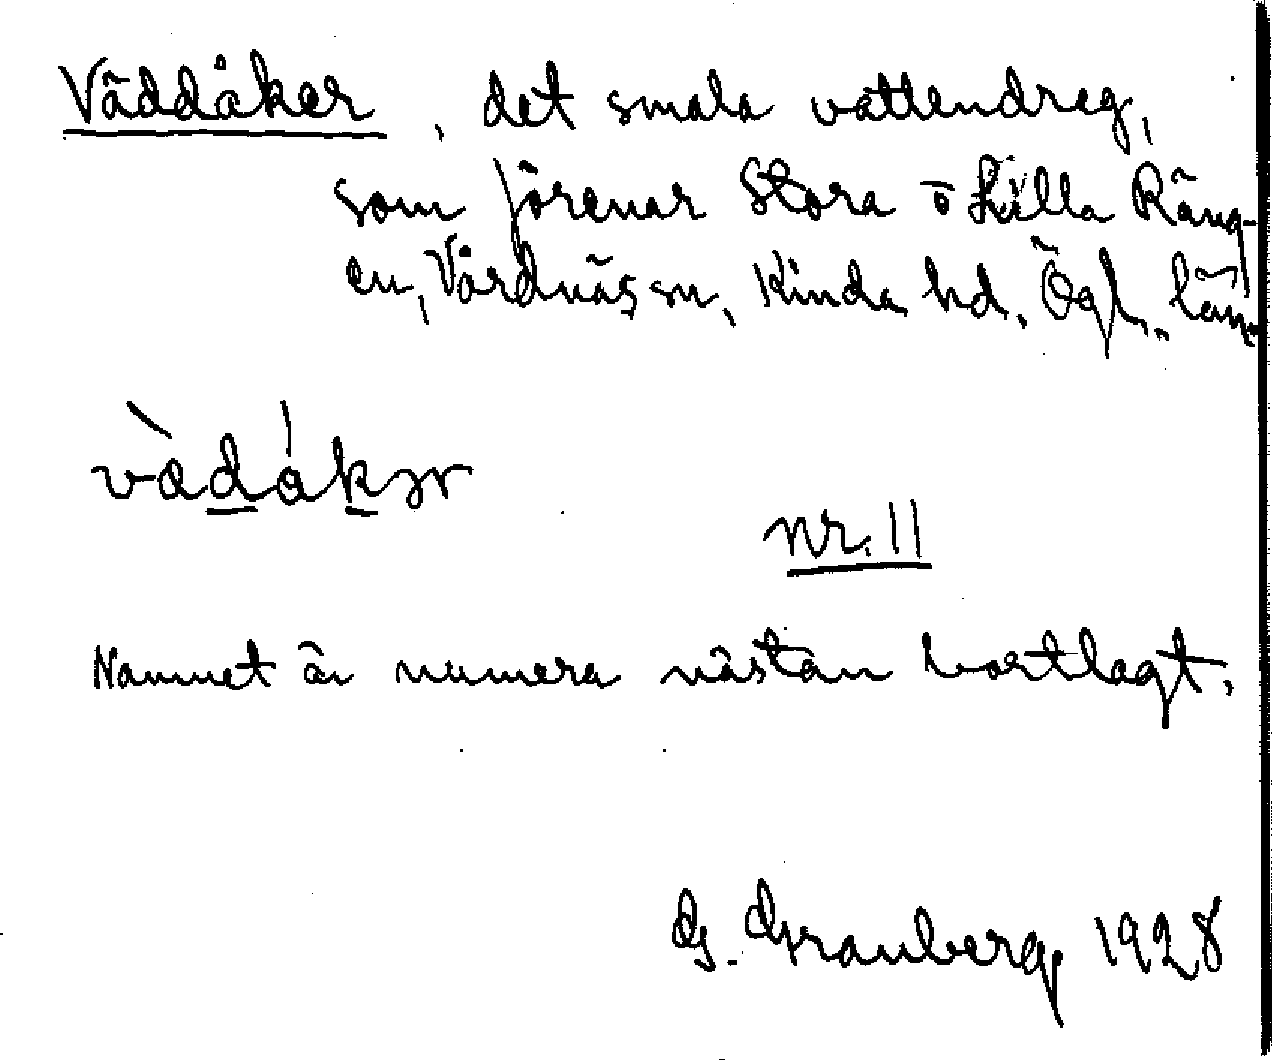 Väddåker, det smala vattendrag,
som förenar Stora o Lilla Räng-
en, Vårdnäs sn, Kinda hd. Ögl. län.
vädåkər
nr. 11
Namnet är numera nästan bortlagt.
G. Granberg 1928